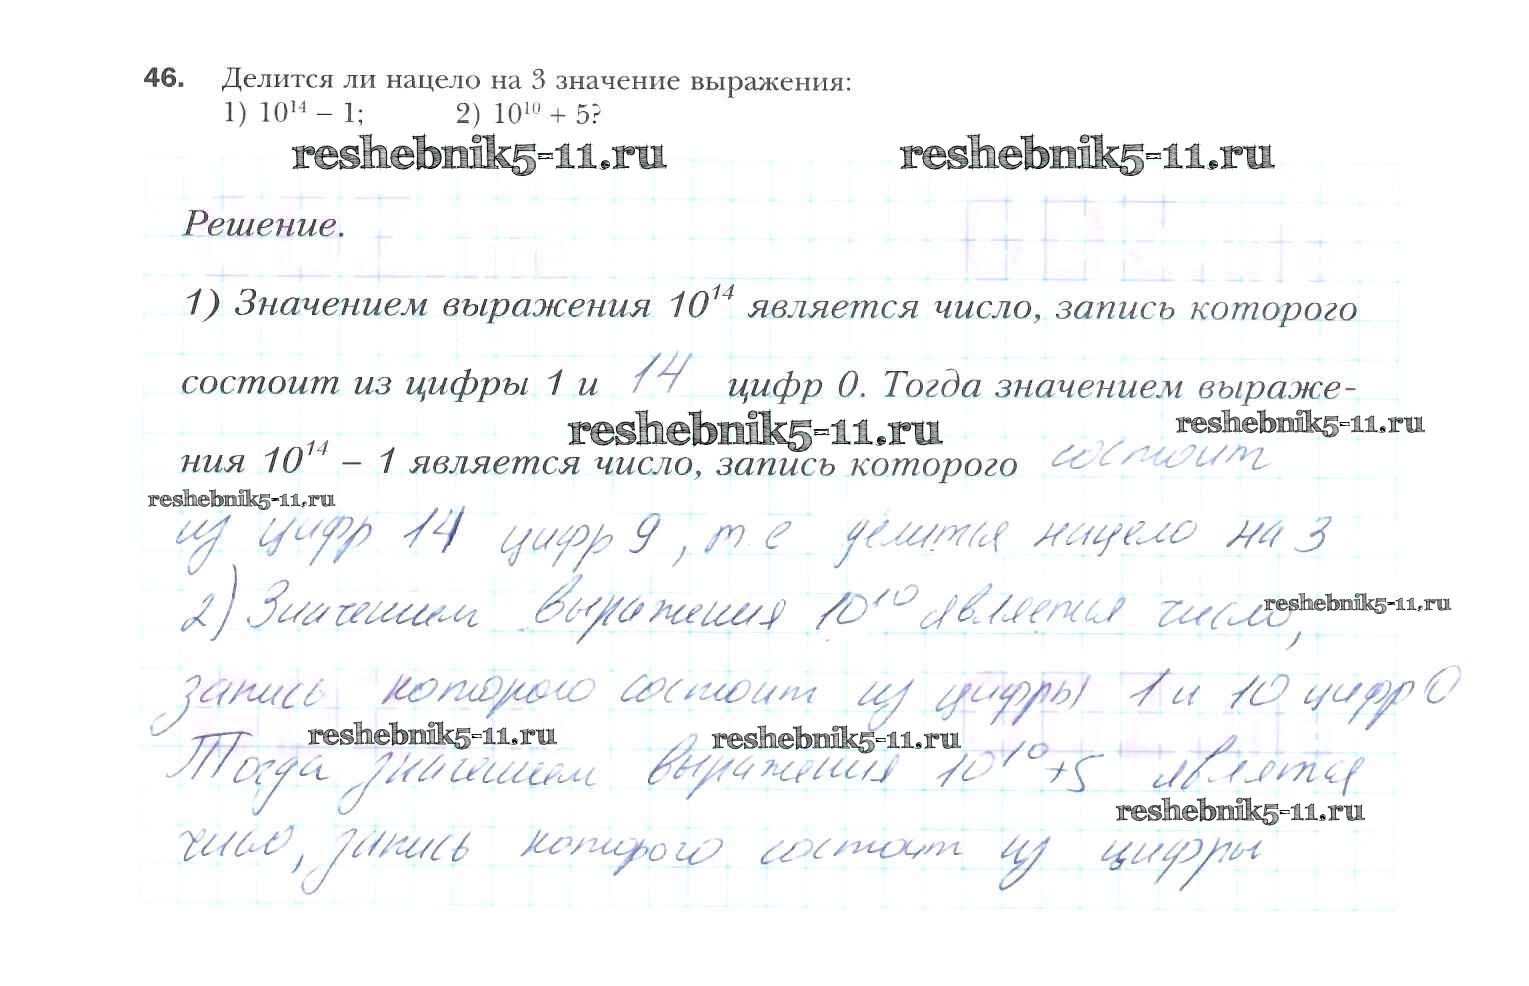 46. Делится ли нацело на 3 значение выражения:
1) 10¹⁴ – 1; 2) 10¹⁰ + 5?
reshebnik5-11.ru reshebnik5-11.ru
Решение.
1) Значением выражения 10¹⁴ является число, запись которого
состоит из цифры 1 и 14 цифр 0. Тогда значением выраже-
reshebnik5-11.ru reshebnik5-11.ru
ния 10¹⁴ – 1 является число, запись которого состоит
reshebnik5-11.ru
из цифр 14 цифр 9, т.е делится нацело на 3
2) Значением выражения 10¹⁰ является число,
reshebnik5-11.ru
запись которого состоит из цифры 1 и 10 цифр 0
reshebnik5-11.ru reshebnik5-11.ru
Тогда значением выражения 10¹⁰+5 является
reshebnik5-11.ru
число, запись которого состоит из цифры